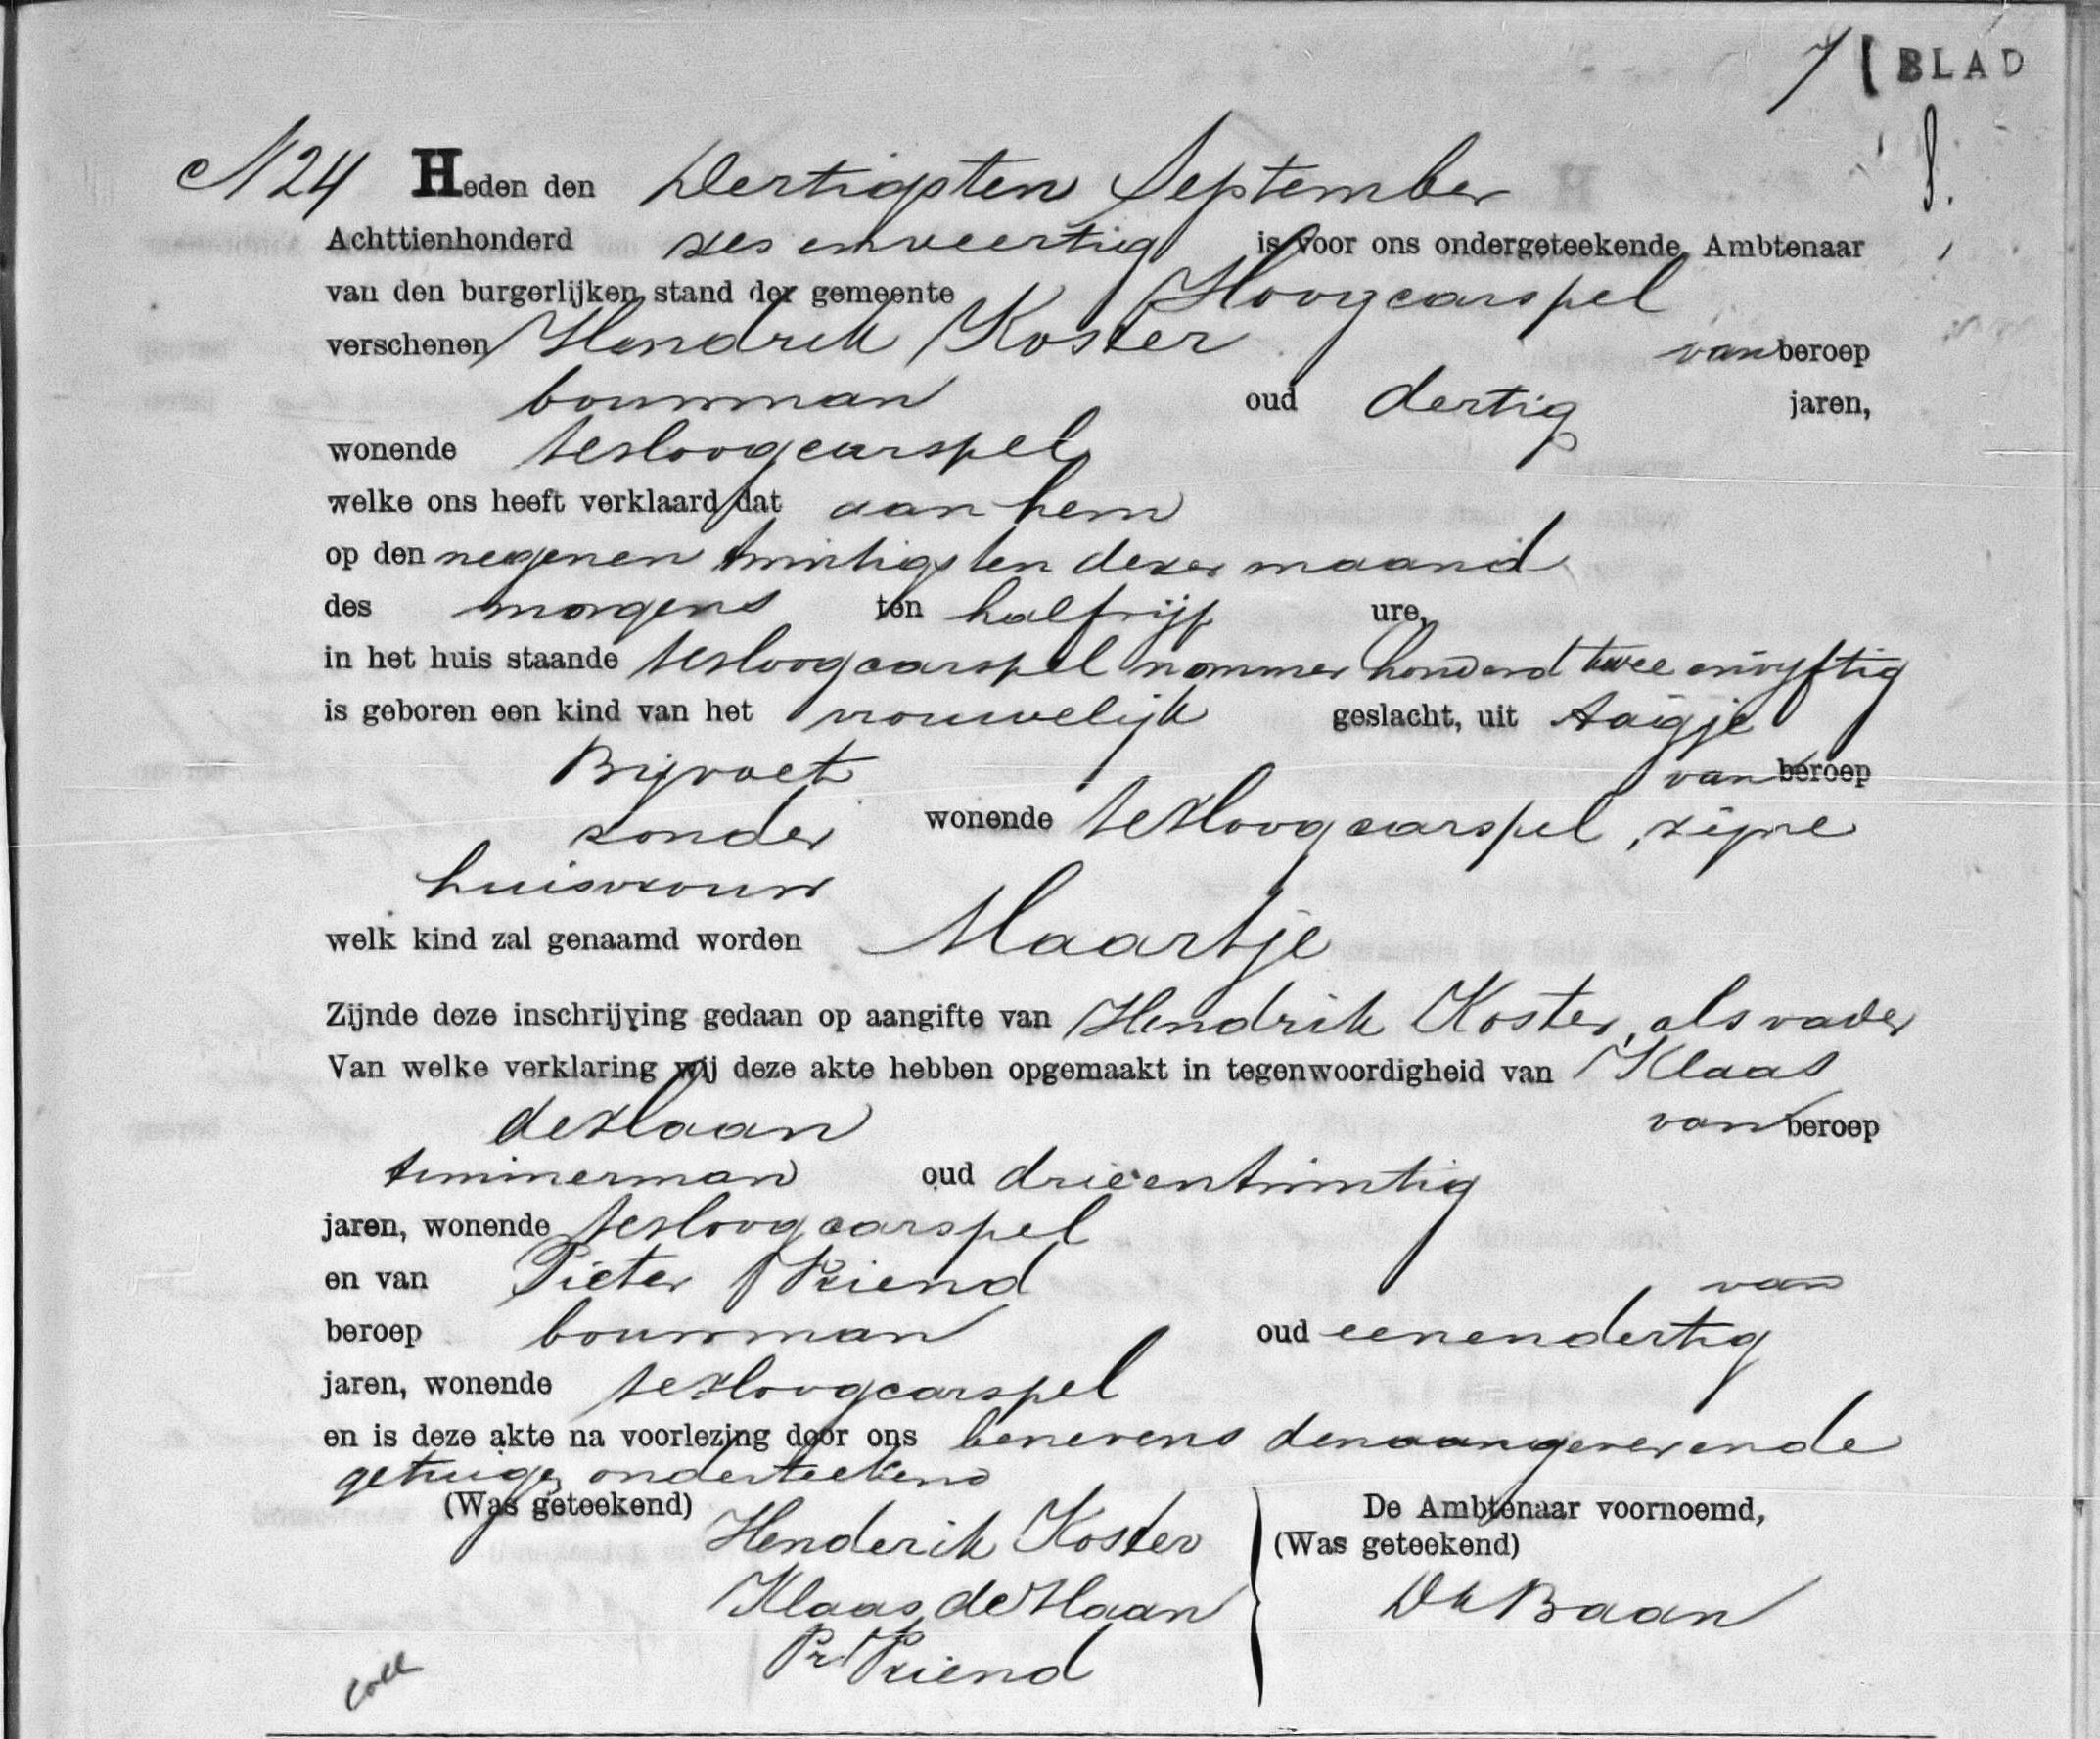 7 BLAD
N 24 Heden den Dertigsten September
Achttienhonderd zes en veertig is voor ons ondergeteekende Ambtenaar
van den burgerlijken stand der gemeente Hoogcarspel
verschenen Hendrik Koster van beroep
bouwman oud dertig jaren,
wonende te Hoogcarspel
welke ons heeft verklaard dat aan hem
op den negenen twintigsten dezer maand
des morgens ten half vijf ure,
in het huis staande te Hoogcarspel nommer honderd twee en vyftig
is geboren een kind van het vrouwelijk geslacht, uit Aagje
Bijvoet van beroep
zonder wonende te Hoogcarspel, zijne
huisvrouw
welk kind zal genaamd worden Maartje
Zijnde deze inschrijving gedaan op aangifte van Hendrik Koster, als vader
Van welke verklaring wij deze akte hebben opgemaakt in tegenwoordigheid van Klaas
de Haan van beroep
timmerman oud drieentwintig
jaren, wonende te Hoogcarspel
en van Pieter Vriend van
beroep bouwman oud eenendertig
jaren, wonende te Hoogcarspel
en is deze akte na voorlezing door ons benevens den aangever en de
getuigen onderteekend
(Was geteekend) De Ambtenaar voornoemd,
Henderik Koster (Was geteekend)
Klaas de Haan Baan
Pr Vriend
Coll